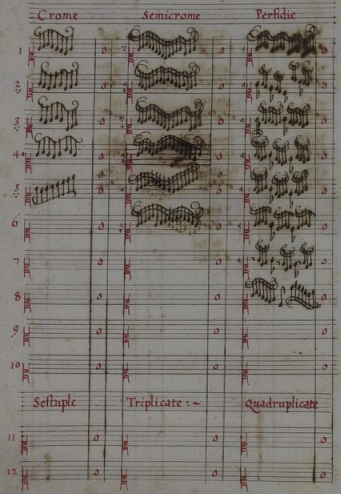 Crome Semicrome Perfidie
1
2
3
4
5
6
7
8
9
10
Sestuple Triplicate :~ Quadruplicate
11
12